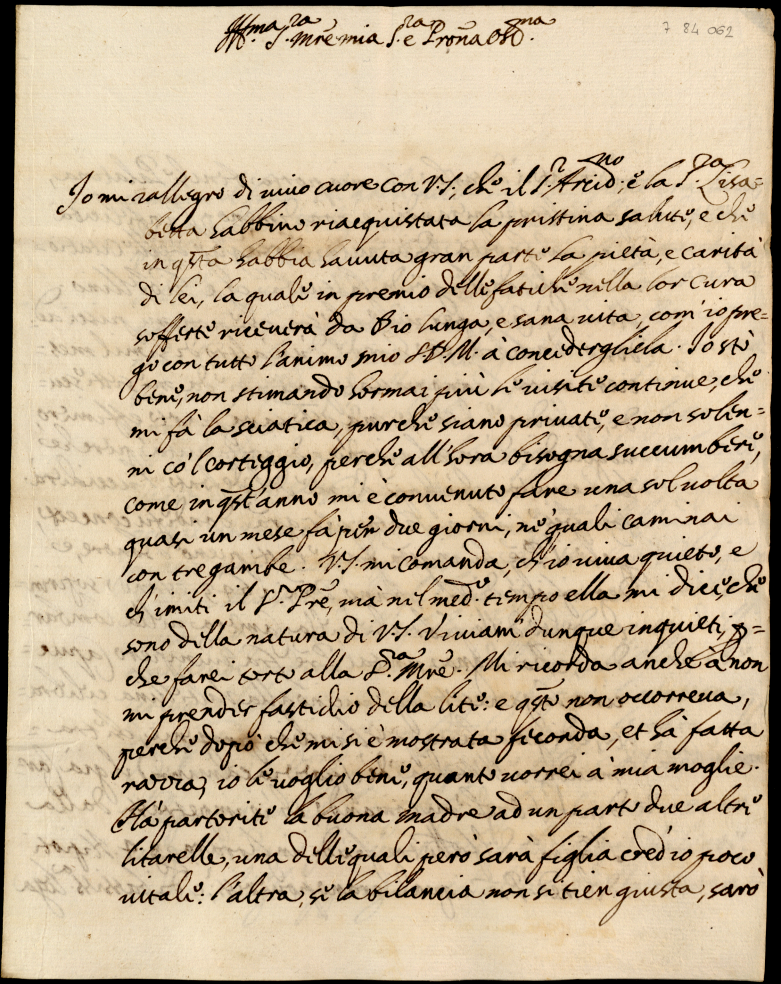 Ill.ma S.ra Mre mia S.ra e Prona Oss.ma
7 84 062
Io mi rallegro di vivo cuore con V.S., che il S.r Arcid.no, e la S.ra Lisa=
betta habbino riacquistata la pristina salute, e che
in qsta habbia havuta gran parte la pietà, e carità
di lei, la quale in premio delle fatiche nella lor cura
sofferte riceverà da Dio lunga, e sana vita, com' io pre=
go con tutto l'animo mio S.D.M. à concedergliela. Io stò
bene, non stimando hormai più le visite continue, che
mi fà la sciatica, purche siano private, e non solen=
ni co'l corteggio, perche all'hora bisogna succumbere,
come in qst'anno mi è convenuto fare una sol volta
quasi un mese fà per due giorni, ne' quali caminai
con tre gambe. V.S. mi comanda, ch'io viva quieto, e
ch'imiti il S.r Pre, mà nel med.o tempo ella mi dice, che
sono della natura di V.S. Viviam dunque inquieti, p=
che farei torto alla S.ra Mre. Mi ricorda anche à non
mi prender fastidio della lite: e qsto non occorreva,
perche dopò che mi si è mostrata feconda, et hà fatta
razza, io le voglio bene, quanto vorrei à mia moglie.
Hà partorito la buona madre ad un parto due altre
litarelle, una delle quali però sarà figlia cred'io poco
vitale: l'altra, se la bilancia non si tien giusta, sarò